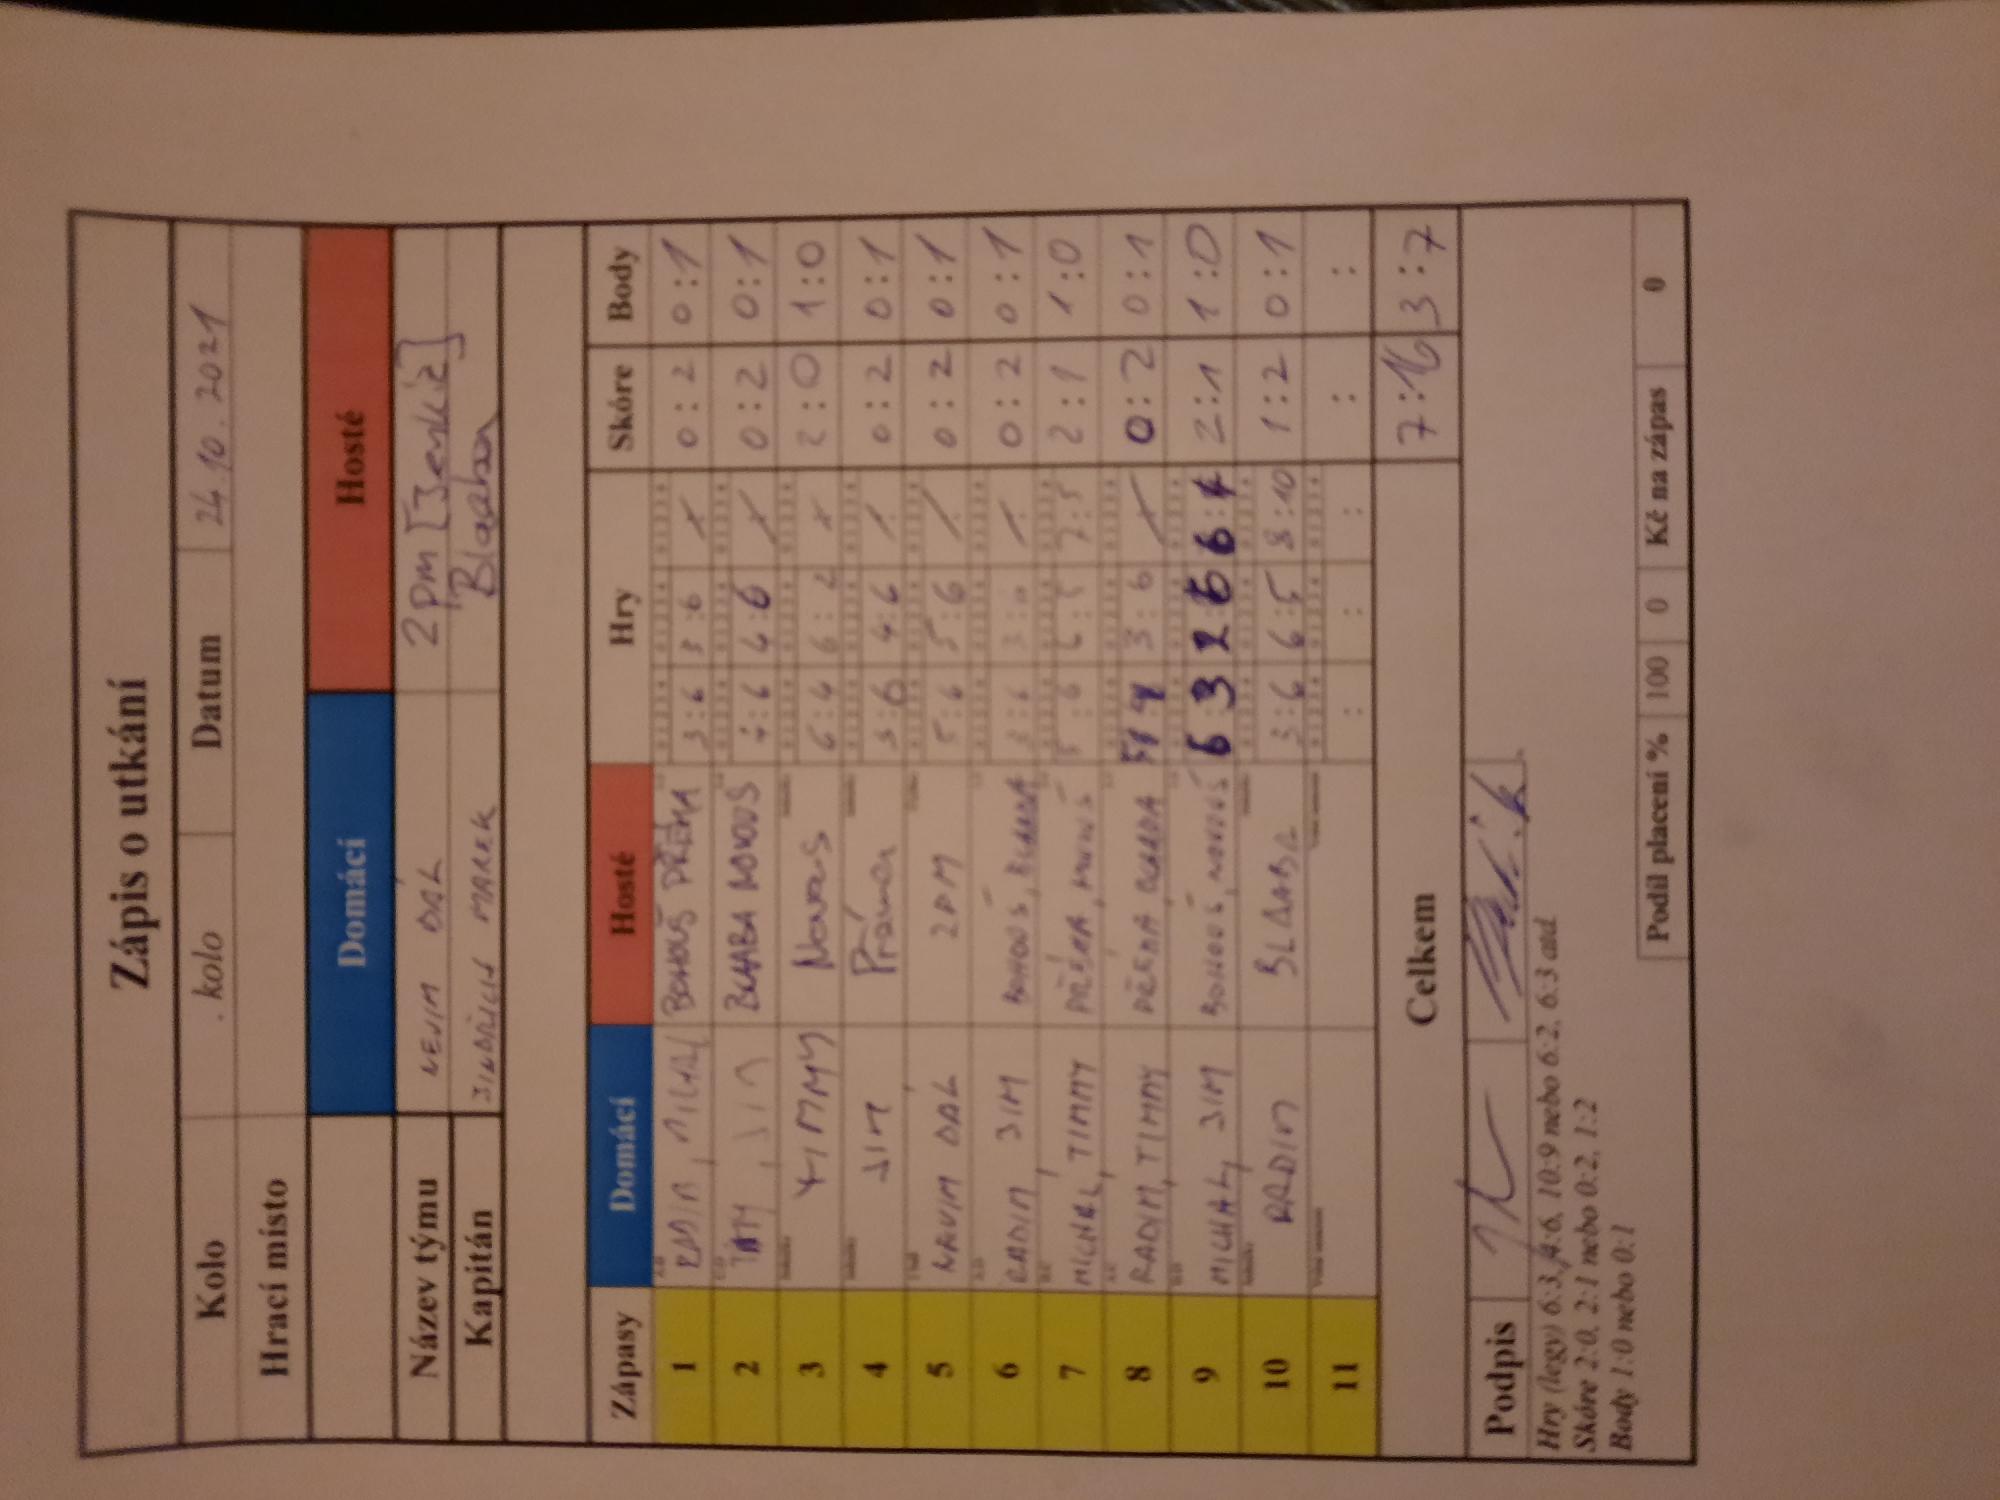 Zápis o utkání
Kolo . kolo Datum 24.10.2021
Hrací místo
Domácí Hosté
Název týmu NEVIM DÁL 2PM [Jenkie]
Kapitán JINDŘICH MAREK Blaaba
Zápasy Domácí Hosté Hry Skóre Body
1 RADIM, MICHAL BOHOUŠ PŘÉMA 3:6 3:6 0:2 0:1
2 TIMMY, JIM BLAABA NOVOUS 4:6 4:6 0:2 0:1
3 TIMMY Novous 6:4 6:2 2:0 1:0
4 JIM 3:6 4:6 0:2 0:1
5 NEVIM DÁL 2PM 5:6 5:6 0:2 0:1
6 RADIM, JIM BOHOUŠ, 3:6 0:2 0:1
7 MICHAL, TIMMY PŘÉMA, NOVOUS :6 6:5 7:5 2:1 1:0
8 RADIM, TIMMY PŘÉMA, 3:6 0:2 0:1
9 MICHAL, JIM BOHOUŠ, NOVOUS 6:3 2:6 6: 2:1 1:0
10 RADIM BLAABA 3:6 6:5 8:10 1:2 0:1
11 : : : : :
Celkem 7:16 3:7
Podpis
Hry (legy) 6:3, 4:6, 10:9 nebo 6:2, 6:3 atd.
Skóre 2:0, 2:1 nebo 0:2, 1:2
Body 1:0 nebo 0:1
Podíl placení % 100 0 Kč na zápas 0